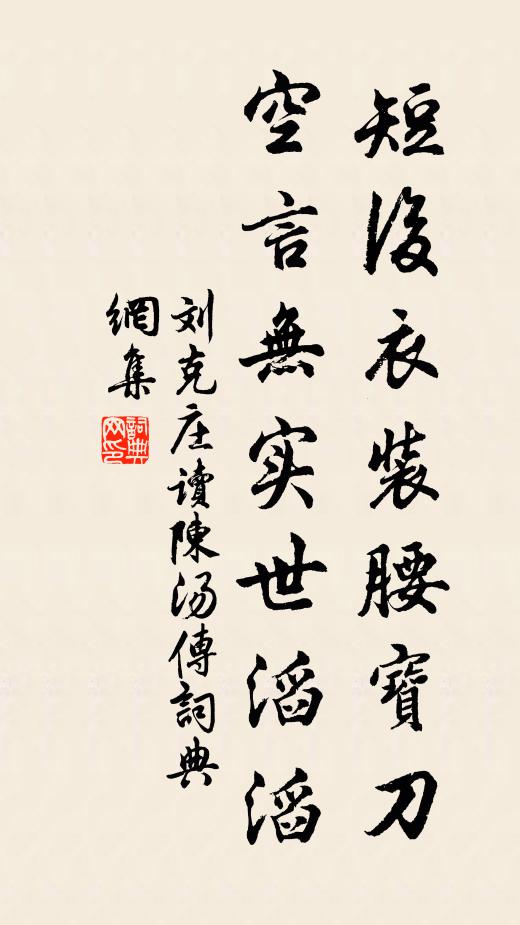 短後衣裝腰寶刀
空言無实世滔滔
刘克庄讀陳汤傳詞典
網集
詞典
网印